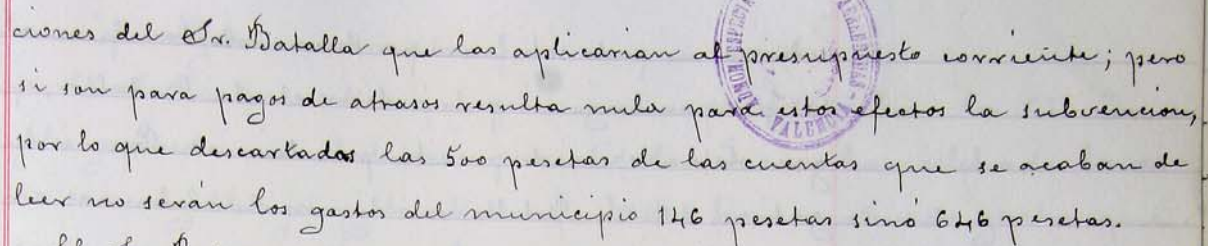 ciones del Sr. Batalla que las aplicarian al presupuesto corriente; pero
si son para pagos de atrasos resulta nula para estos efectos la subvencion,
por lo que descartadas las 500 pesetas de las cuentas que se acaban de
leer no serán los gastos del municipio 146 pesetas sinó 646 pesetas.